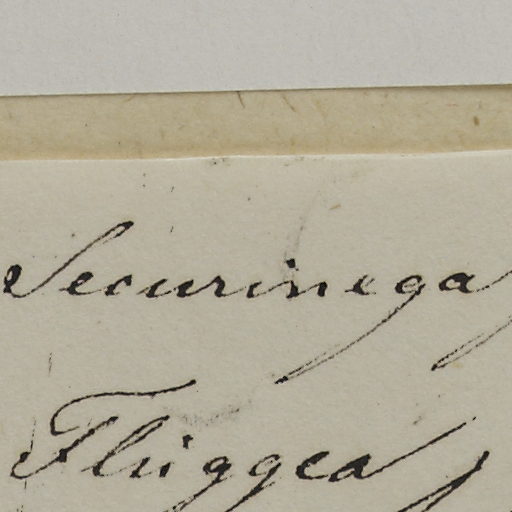 Securinega
Fluggea